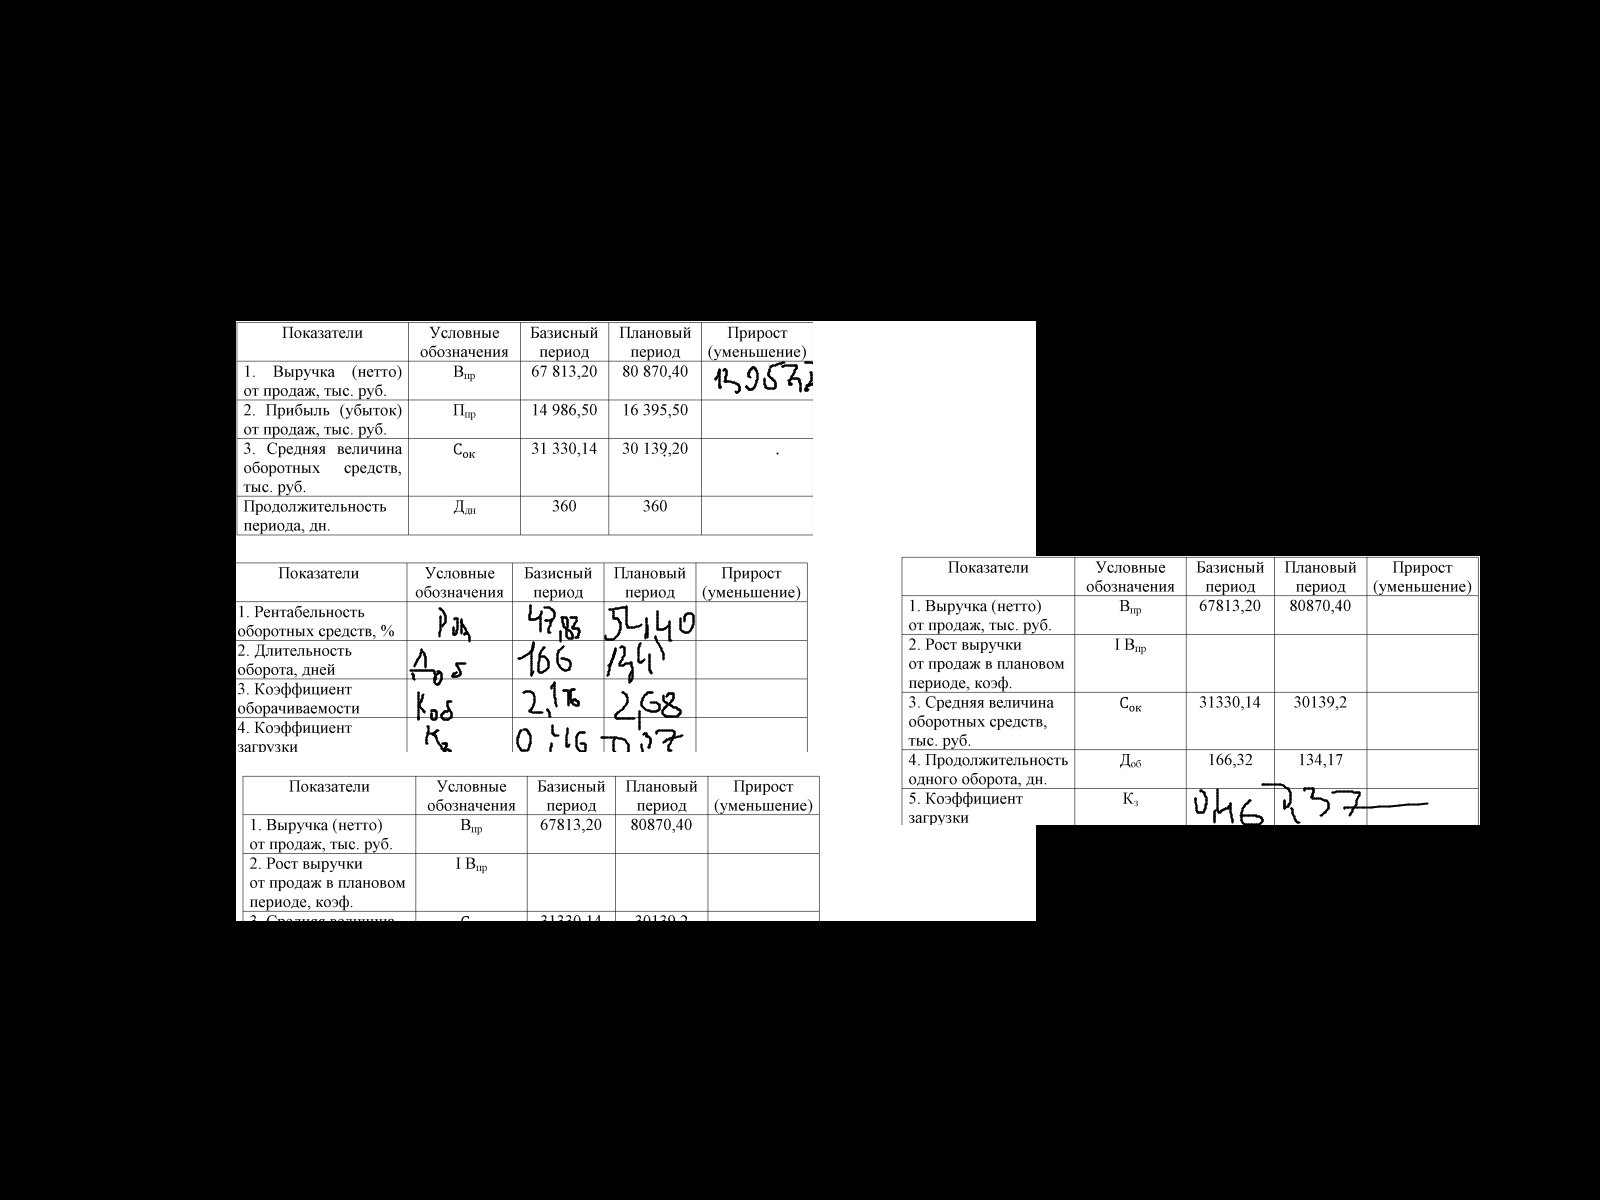 Показатели Условные обозначения Базисный период Плановый период Прирост (уменьшение)
1. Выручка (нетто) от продаж, тыс. руб. Впр 67 813,20 80 870,40
2. Прибыль (убыток) от продаж, тыс. руб. Ппр 14 986,50 16 395,50
3. Средняя величина оборотных средств, тыс. руб. Сок 31 330,14 30 139,20
Продолжительность периода, дн. Ддн 360 360
Показатели Условные обозначения Базисный период Плановый период Прирост (уменьшение)
1. Рентабельность оборотных средств, % 47,83 54,40
2. Длительность оборота, дней Доб 166 134
3. Коэффициент оборачиваемости Коб 2,16 2,68
4. Коэффициент загрузки Кз 0,46 0,37
Показатели Условные обозначения Базисный период Плановый период Прирост (уменьшение)
1. Выручка (нетто) от продаж, тыс. руб. Впр 67813,20 80870,40
2. Рост выручки от продаж в плановом периоде, коэф. I Впр
3. Средняя величина С 31330,14 30139,2
Показатели Условные обозначения Базисный период Плановый период Прирост (уменьшение)
1. Выручка (нетто) от продаж, тыс. руб. Впр 67813,20 80870,40
2. Рост выручки от продаж в плановом периоде, коэф. I Впр
3. Средняя величина оборотных средств, тыс. руб. Сок 31330,14 30139,2
4. Продолжительность одного оборота, дн. Доб 166,32 134,17
5. Коэффициент загрузки Кз 0,46 0,37